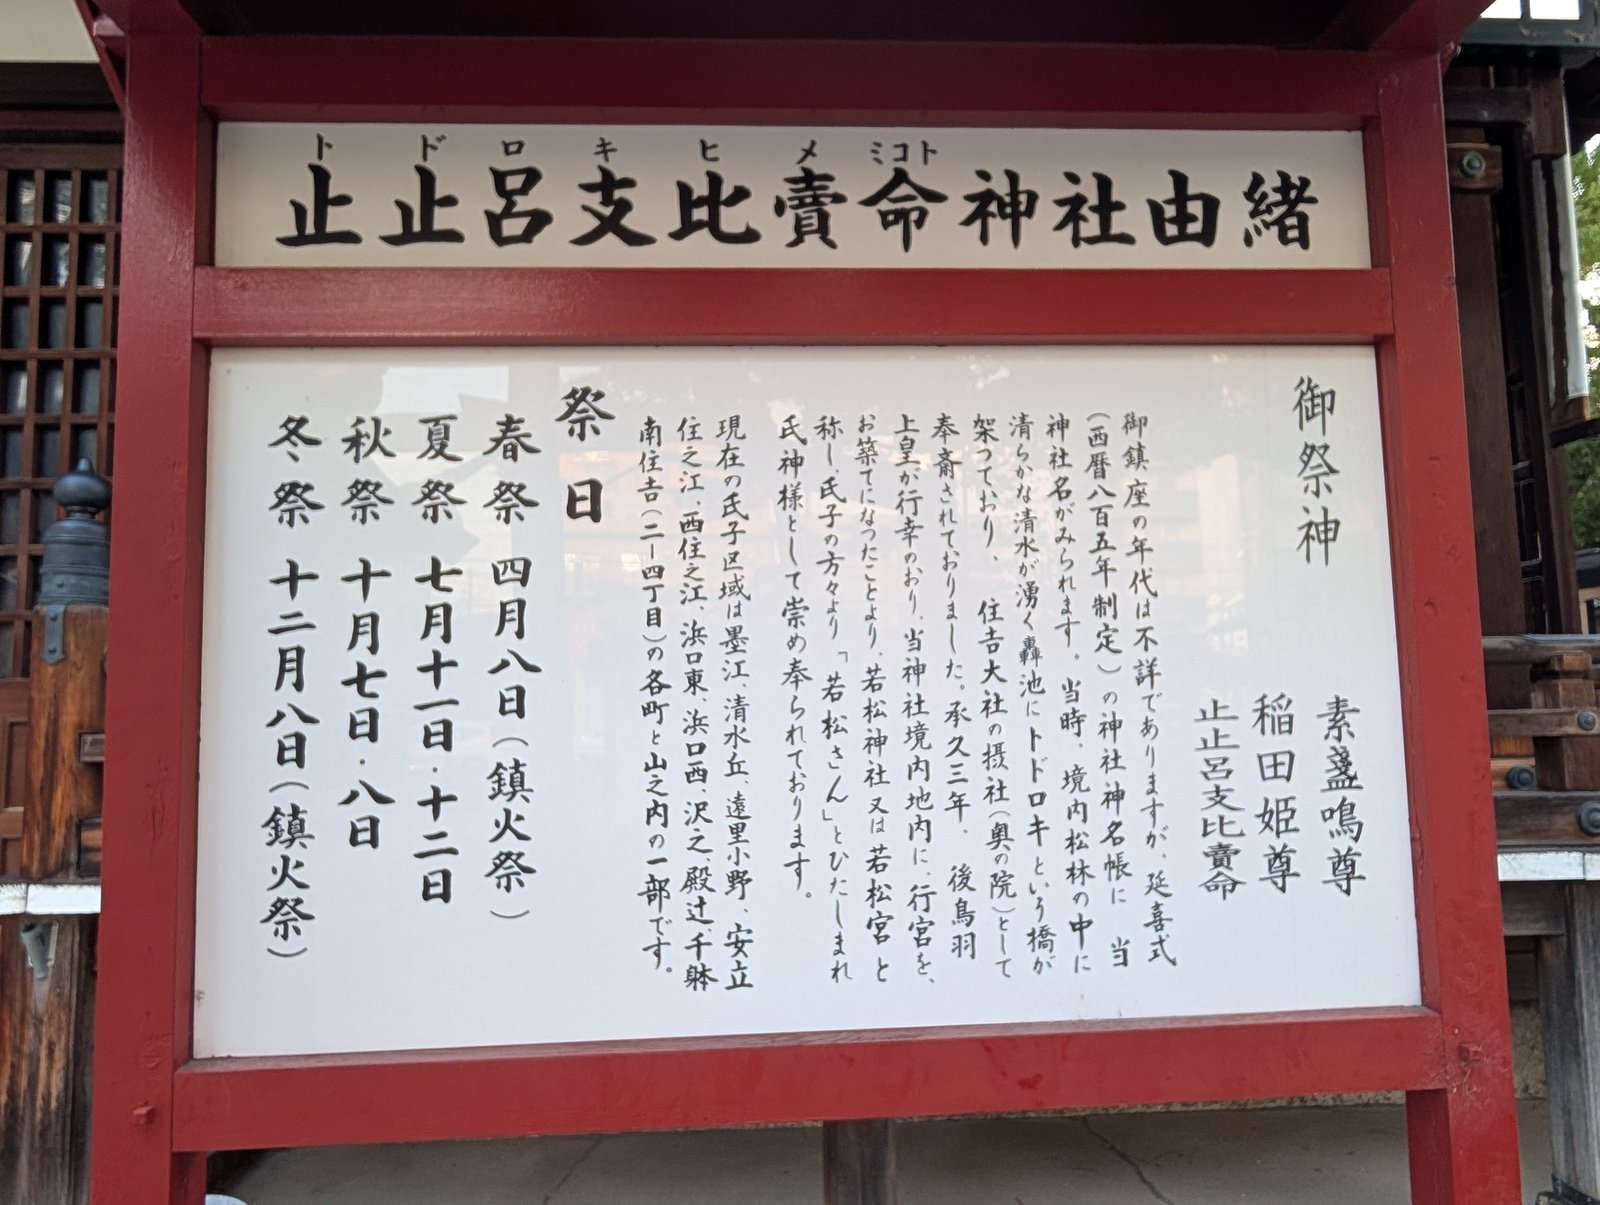 トドロキヒメミコト
止止呂支比賣命神社由緒
御祭神
素盞鳴尊
稲田姫尊
止止呂支比賣命
御鎮座の年代は不詳でありますが、延喜式
(西暦八百五年制定)の神社神名帳に 当
神社名がみられます。当時、境内松林の中に
清らかな清水が湧く轟池にトドロキという橋が
架つており、 住吉大社の摂社(奥の院)として
奉斎されておりました。承久三年、 後鳥羽
上皇が行幸のおり、当神社境内地内に、行宮を、
お築てになつたことより、若松神社又は若松宮と
称し、氏子の方々より「若松さん」とひたしまれ
氏神様として崇め奉られております。
現在の氏子区域は墨江、清水丘、遠里小野、安立
住之江、西住之江、浜口東、浜口西、沢之、殿辻、千躰
南住吉(二ー四丁目)の各町と山之内の一部です。
祭日
春祭 四月八日(鎮火祭)
夏祭 七月十一日・十二日
秋祭 十月七日・八日
冬祭 十二月八日(鎮火祭)